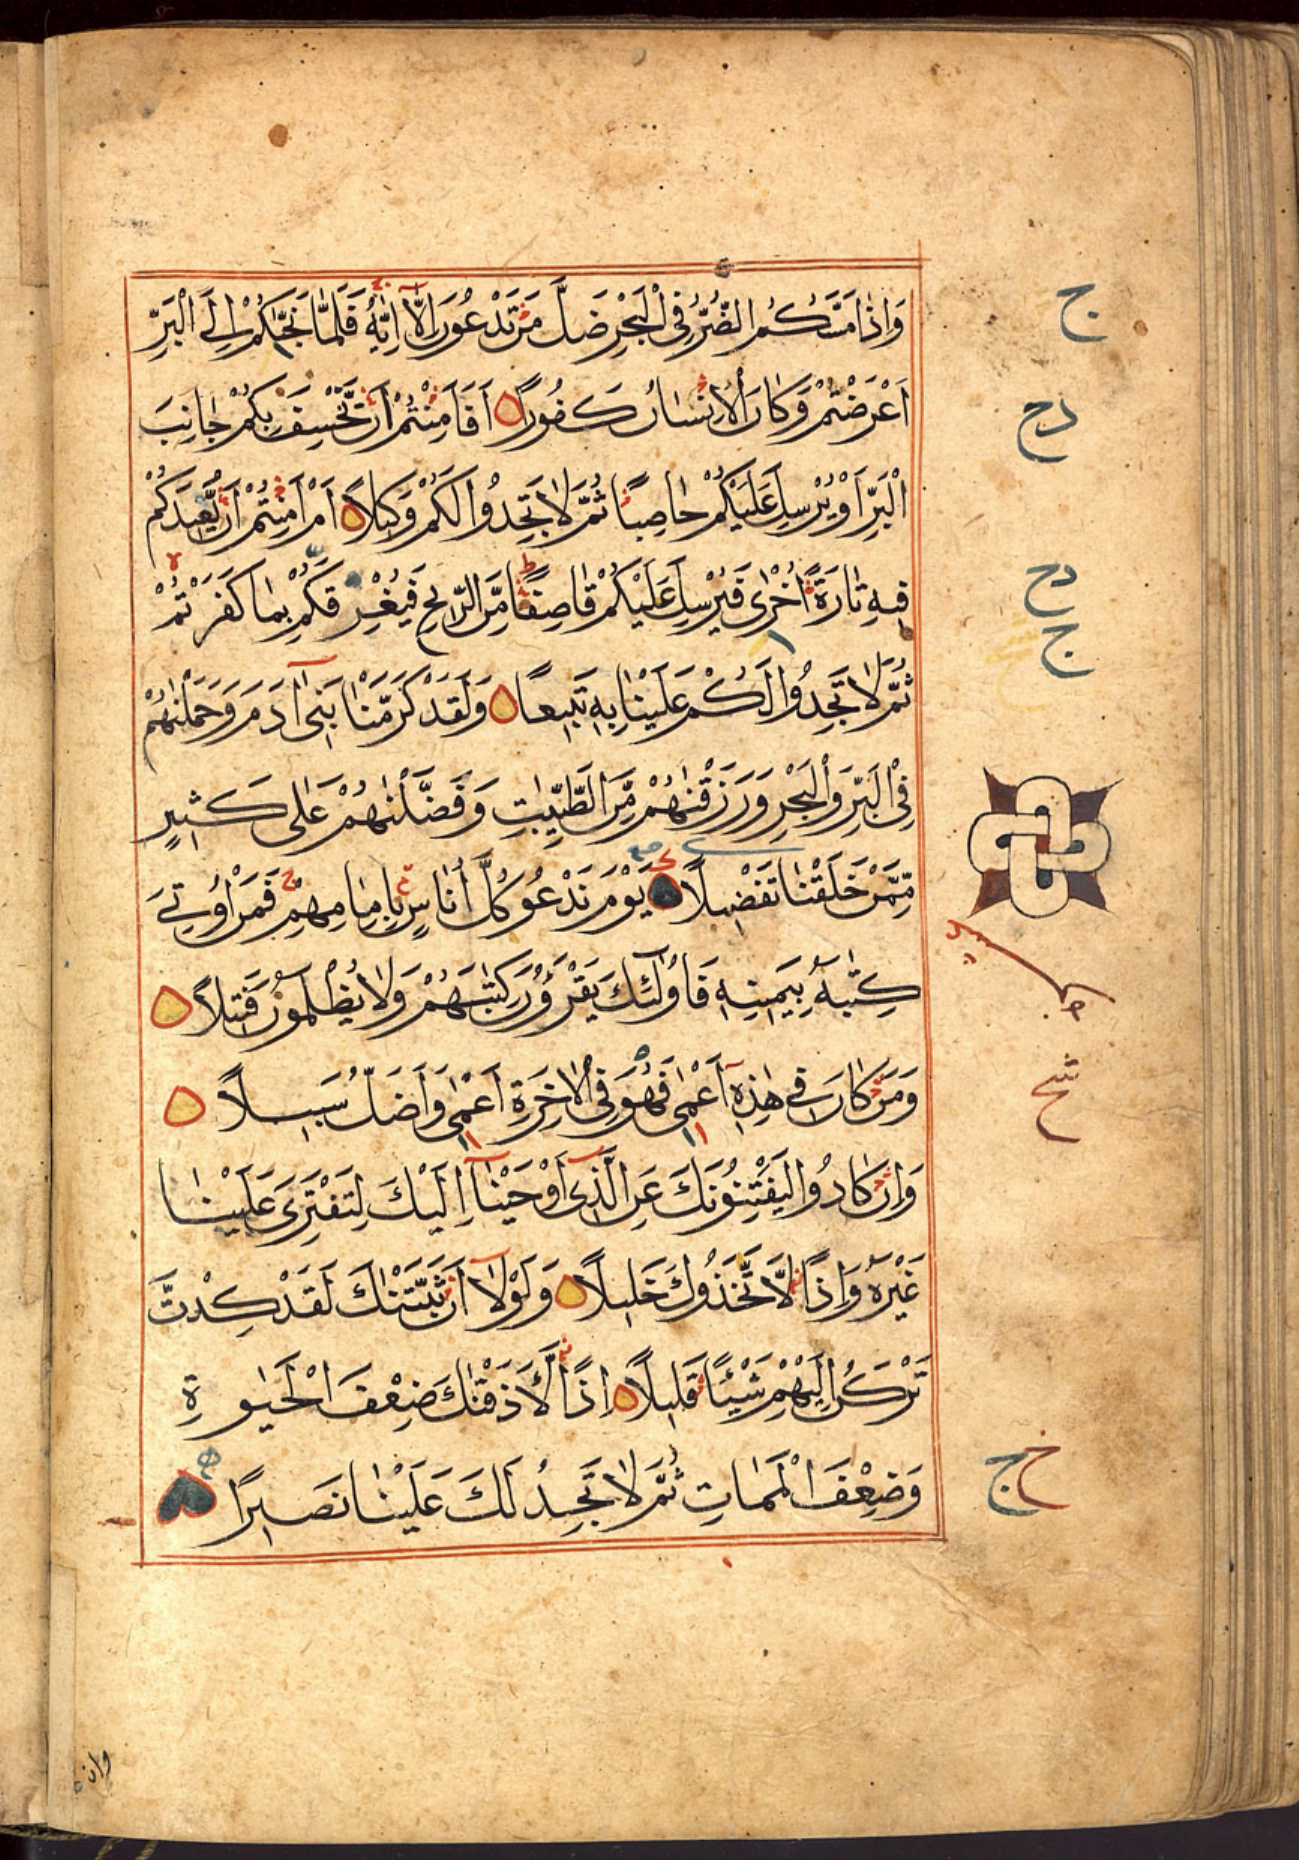 وَاِذَا مَسَّكُمُ الضُّرُّ فِى الْبَحْرِ ضَلَّ مَنْ تَدْعُونَ اِلَّآ اِيَّاهُ فَلَمَّا نَجّٰىكُمْ اِلَى الْبَرِّ
ج
اَعْرَضْتُمْ وَكَانَ الْاِنْسَانُ كَفُورًا اَفَاَمِنْتُمْ اَنْ نَخْسِفَ بِكُمْ جَانِبَ
دح
الْبَرِّ اَوْ نُرْسِلَ عَلَيْكُمْ حَاصِبًا ثُمَّ لَا تَجِدُوا لَكُمْ وَكِيلًا اَمْ اَمِنْتُمْ اَنْ نُعِيدَكُمْ
فِيهِ تَارَةً اُخْرٰى فَنُرْسِلَ عَلَيْكُمْ قَاصِفًا مِنَ الرِّيحِ فَنُغْرِقَكُمْ بِمَا كَفَرْتُمْ
دح
ج
ثُمَّ لَا تَجِدُوا لَكُمْ عَلَيْنَا بِهِ تَبِيعًا وَلَقَدْ كَرَّمْنَا بَنِىٓ اٰدَمَ وَحَمَلْنٰهُمْ
فِى الْبَرِّ وَالْبَحْرِ وَرَزَقْنٰهُمْ مِنَ الطَّيِّبٰتِ وَفَضَّلْنٰهُمْ عَلٰى كَثِيرٍ
مِمَّنْ خَلَقْنَا تَفْضِيلًا يَوْمَ نَدْعُو كُلَّ اُنَاسٍ بِاِمَامِهِمْ فَمَنْ اُوتِىَ
كِتٰبَهُ بِيَمِينِهِ فَاُولٰٓئِكَ يَقْرَؤُنَ كِتٰبَهُمْ وَلَا يُظْلَمُونَ فَتِيلًا
وَمَنْ كَانَ فِى هٰذِهِٓ اَعْمٰى فَهُوَ فِى الْاٰخِرَةِ اَعْمٰى وَاَضَلُّ سَبِيلًا
وَاِنْ كَادُوا لَيَفْتِنُونَكَ عَنِ الَّذِىٓ اَوْحَيْنَآ اِلَيْكَ لِتَفْتَرِىَ عَلَيْنَا
غَيْرَهُ وَاِذًا لَاتَّخَذُوكَ خَلِيلًا وَلَوْلَآ اَنْ ثَبَّتْنٰكَ لَقَدْ كِدْتَّ
تَرْكَنُ اِلَيْهِمْ شَيْئًا قَلِيلًا اِذًا لَاَذَقْنٰكَ ضِعْفَ الْحَيٰوةِ
وَضِعْفَ الْمَمَاتِ ثُمَّ لَا تَجِدُ لَكَ عَلَيْنَا نَصِيرًا
وان